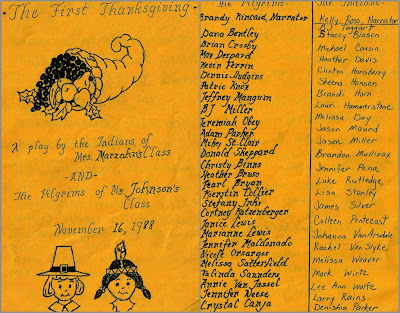 The First Thanksgiving
A play by the Indians of
Mrs. Marzahn's Class
-AND-
The Pilgrims of Ms. Johnson's
Class
November 16, 1988
The Pilgrims:
Brandy Kincaid, Narrator
Dana Bentley
Brian Crosby
Max Despard
Kevin Ferrin
Dennis Judgins
Patric Knox
Jeffrey Mangum
B.J. Miller
Jeremiah Obey
Adam Parker
Mikey St. Clair
Donald Sheppard
Christy Binns
Heather Bruso
Pearl Bryan
Kierstin Collier
Stefany Inks
Cortney Katzenberger
Janice Lewis
Marianne Lewis
Jennifer Maldonado
Nicole Orsargos
Melissa Satterfield
Talinda Saunders
Annie Van Jassel
Jennifer Weese
Crystal Canja
The Indians:
Kelly Ross, Narrator
AJ Taggart
Stacey Blasen
Michael Cousin
Heather Davis
Clinton Hansberry
Sheena Hansen
Brandi Horn
Lauri Hammerstone
Melissa Day
Jason Maund
Jason Miller
Brandon Mullinax
Jennifer Pena
Luke Rutledge
Lisa Stanley
James Silver
Colleen Pentecost
Johanna VanArsdale
Rachel VanSlyke
Melissa Weaver
Mark Wirtz
Lee Ann Wolfe
Larry Rains
Denishia Parker